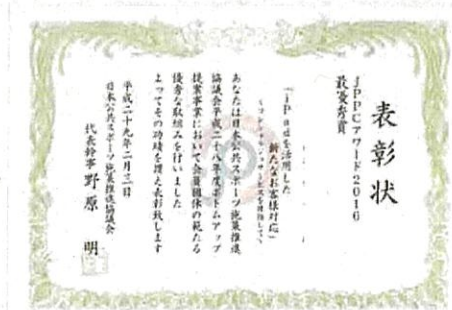 表彰状
JPPCアワード2016
最優秀賞
「iPadを活用した
新たなお客様対応」
あなたは日本公共スポーツ施策推進
協議会平成二十八年度ボトムアップ
提案事業において会員団体の範たる
優秀な取組みを行いました
よってその功績を讃え表彰致します
平成二十九年二月三日
日本公共スポーツ施策推進協議会
代表幹事 野原 明